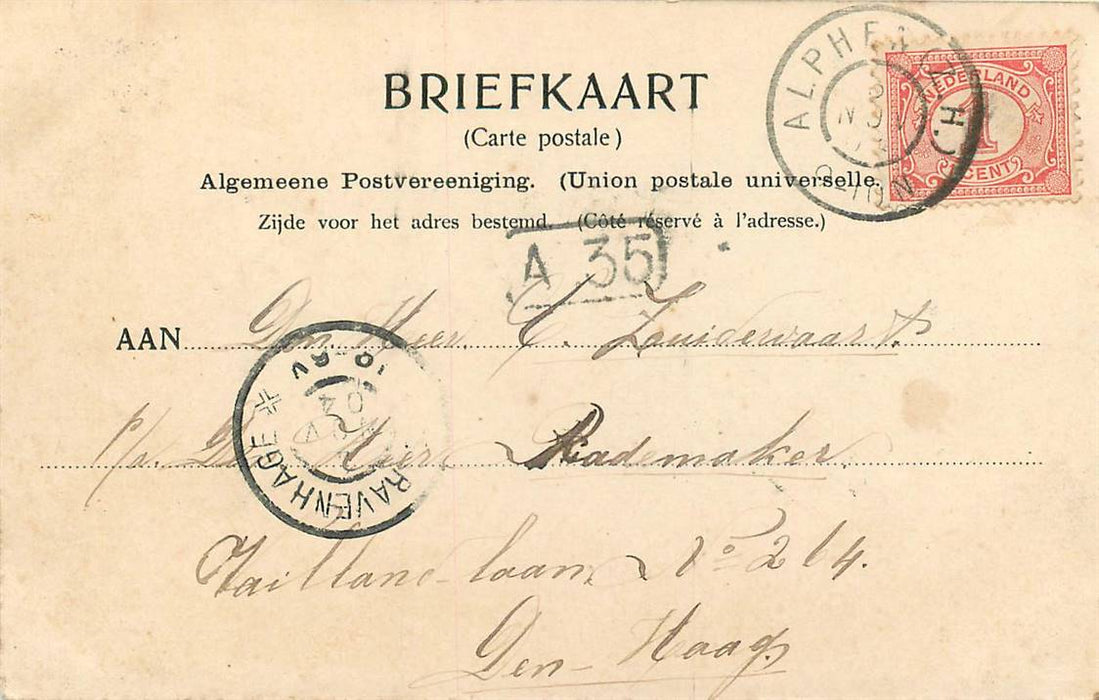 BRIEFKAART
(Carte postale)
Algemeene Postvereeniging. (Union postale universelle.
Zijde voor het adres bestemd. (Côté réservé à l'adresse.)
NEDERLAND
1
CENT
ALPHEN
A 35
AAN Den Heer C. Zuidervaart
p/a. Den Heer Rademaker.
RAVENHAGE
10-6V
NOV
04
laan, No 214.
Den-Haag.